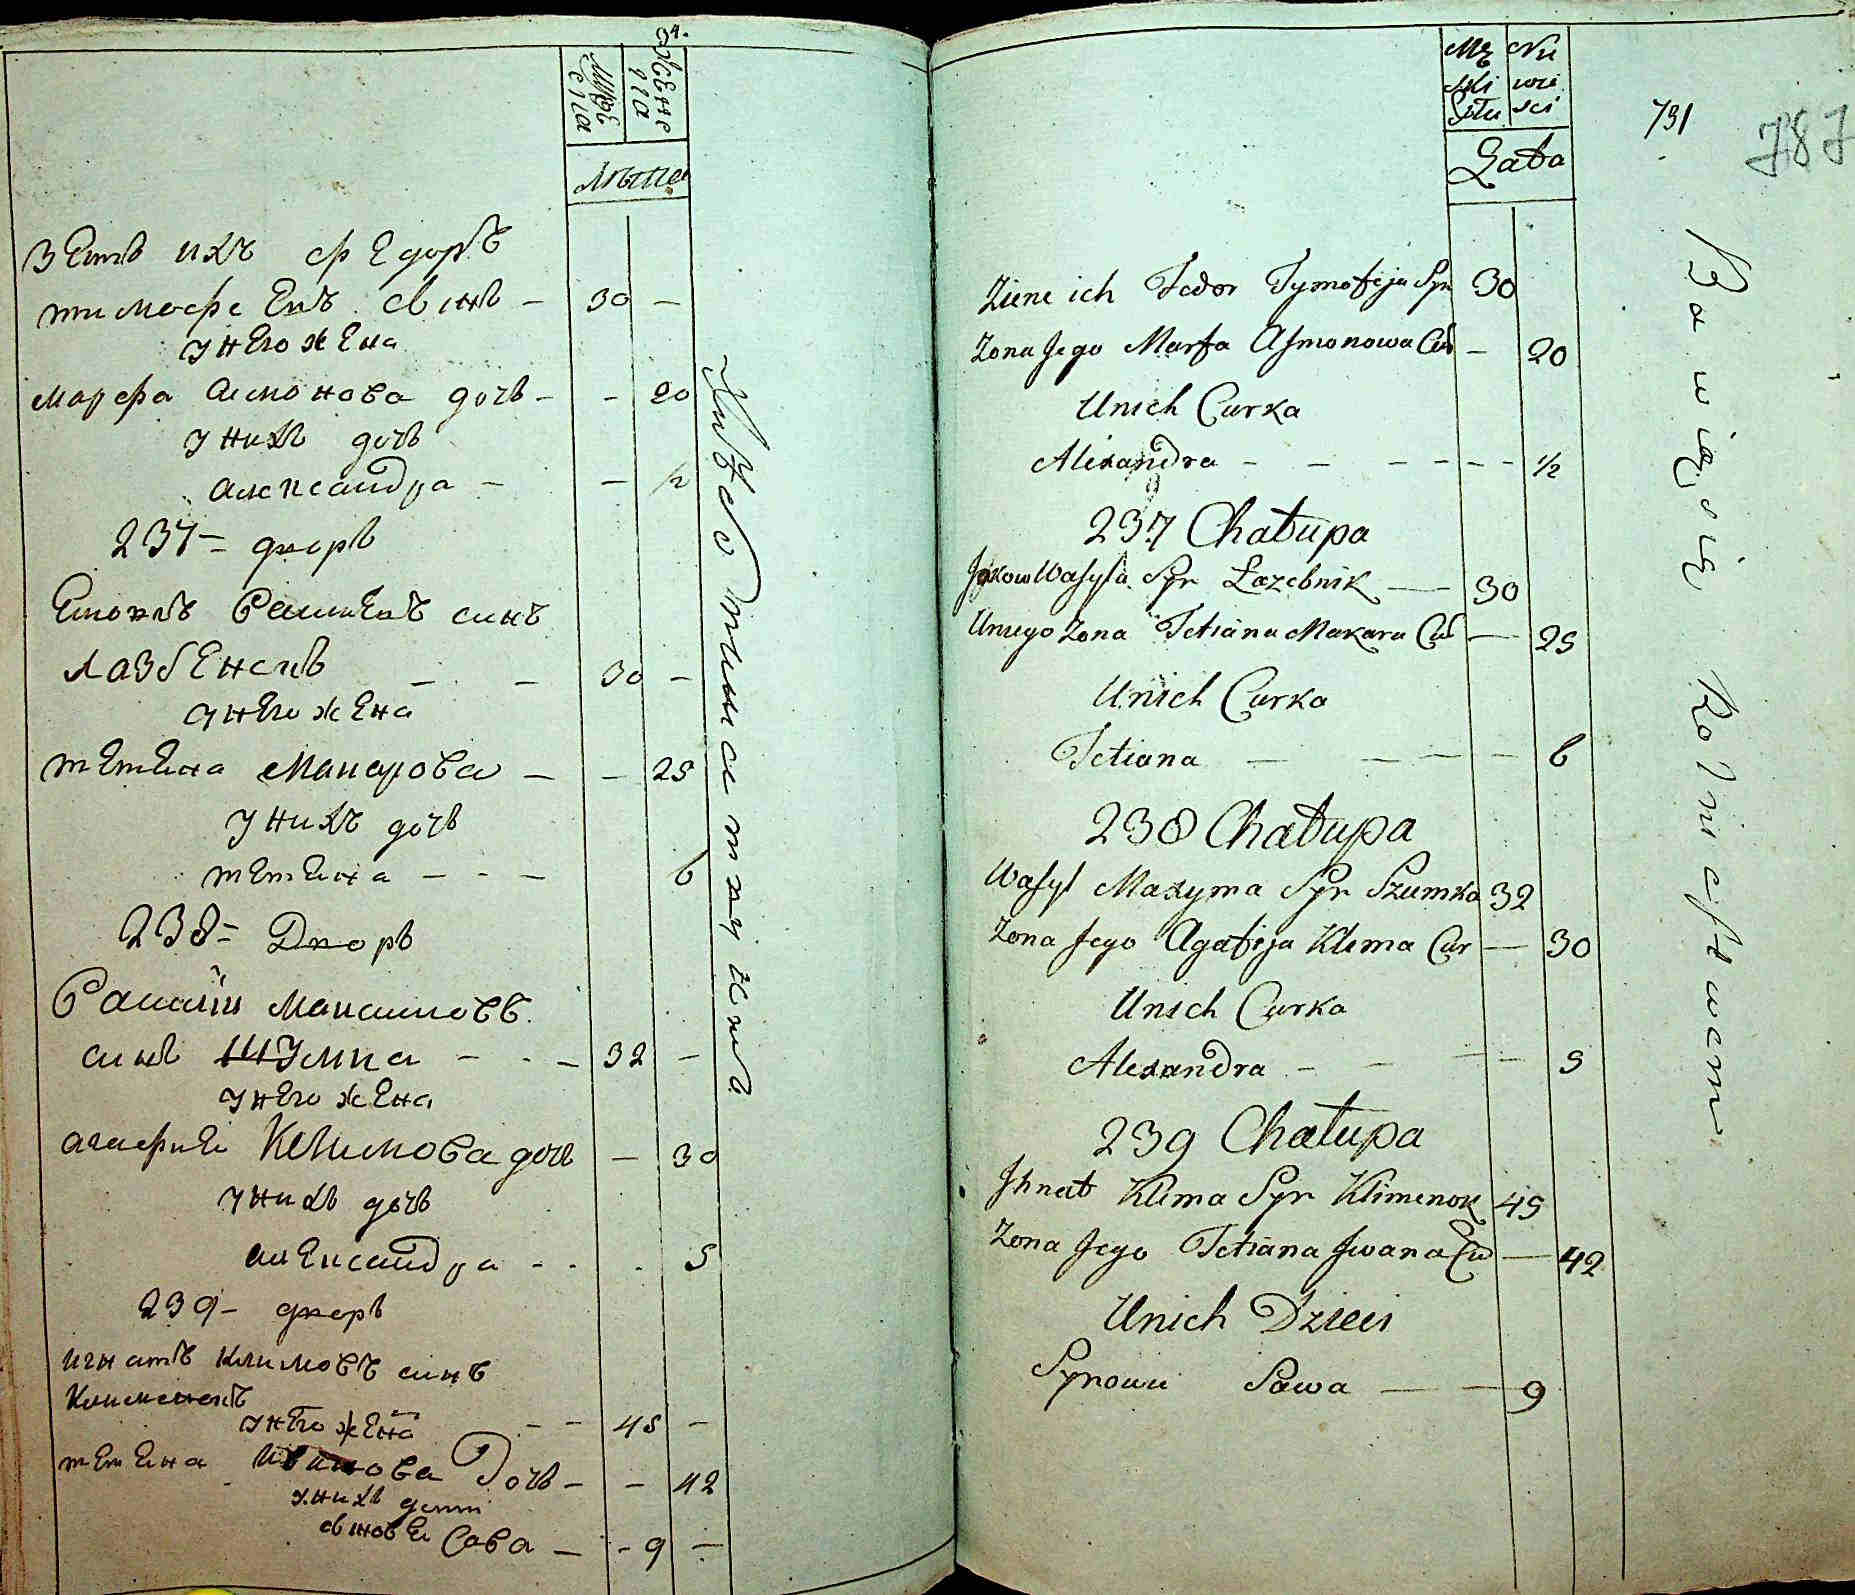 34.
муже
ска
жене
ка
Лѣта
зеть ихъ Федоръ
тимофеевъ сынъ - 30 -
у него жена
марфа асмонова дочь - - 20
у нихъ дочь
александра - - 1/2
237 = дворъ
лазбеникъ - - 30 -
у него жена
тетена Макарова - - 25
у нихъ дочь
тетена - - - 6
238 = Дворъ
Василий Максимовъ
синъ Шумка - - - 32 -
у него жена
агафия Климова дочь - 30
у нихъ дочь
александра - - - 5
239 - дворъ
игнатъ климовъ синъ
клименокъ
у него жена - - 45 -
тетена Иванова Дочь - - 42
у нихъ дети
синове Сава - - 9 -
Хлебопашествомъ
Mę Nie
ski wie
Płu sci
Lata
731
787
Ziene ich Fedor Tymofieja Syn 30
Zona Jego Marfa Asmonowa Cur - 20
Unich Curka
Alexandra - - - - - - 1/2
237 Chatupa
Jakow Wasyla Syn Łazebnik - 30
Uniego Zona Tetiana Makara Cur - 25
Unich Curka
Tetiana - - - - 6
238 Chatupa
Wasyl Maxyma Syn Szumka 32
Zona Jego Agafija Klima Cur - 30
Unich Curka
Alexandra - - - - 5
239 Chatupa
Ihnat Klima Syn Klimenok 45
Zona Jego Tetiana Iwana Cur - 42
Unich Dzieci
Synowie Sawa - - 9
Bawią się Rolnictwem